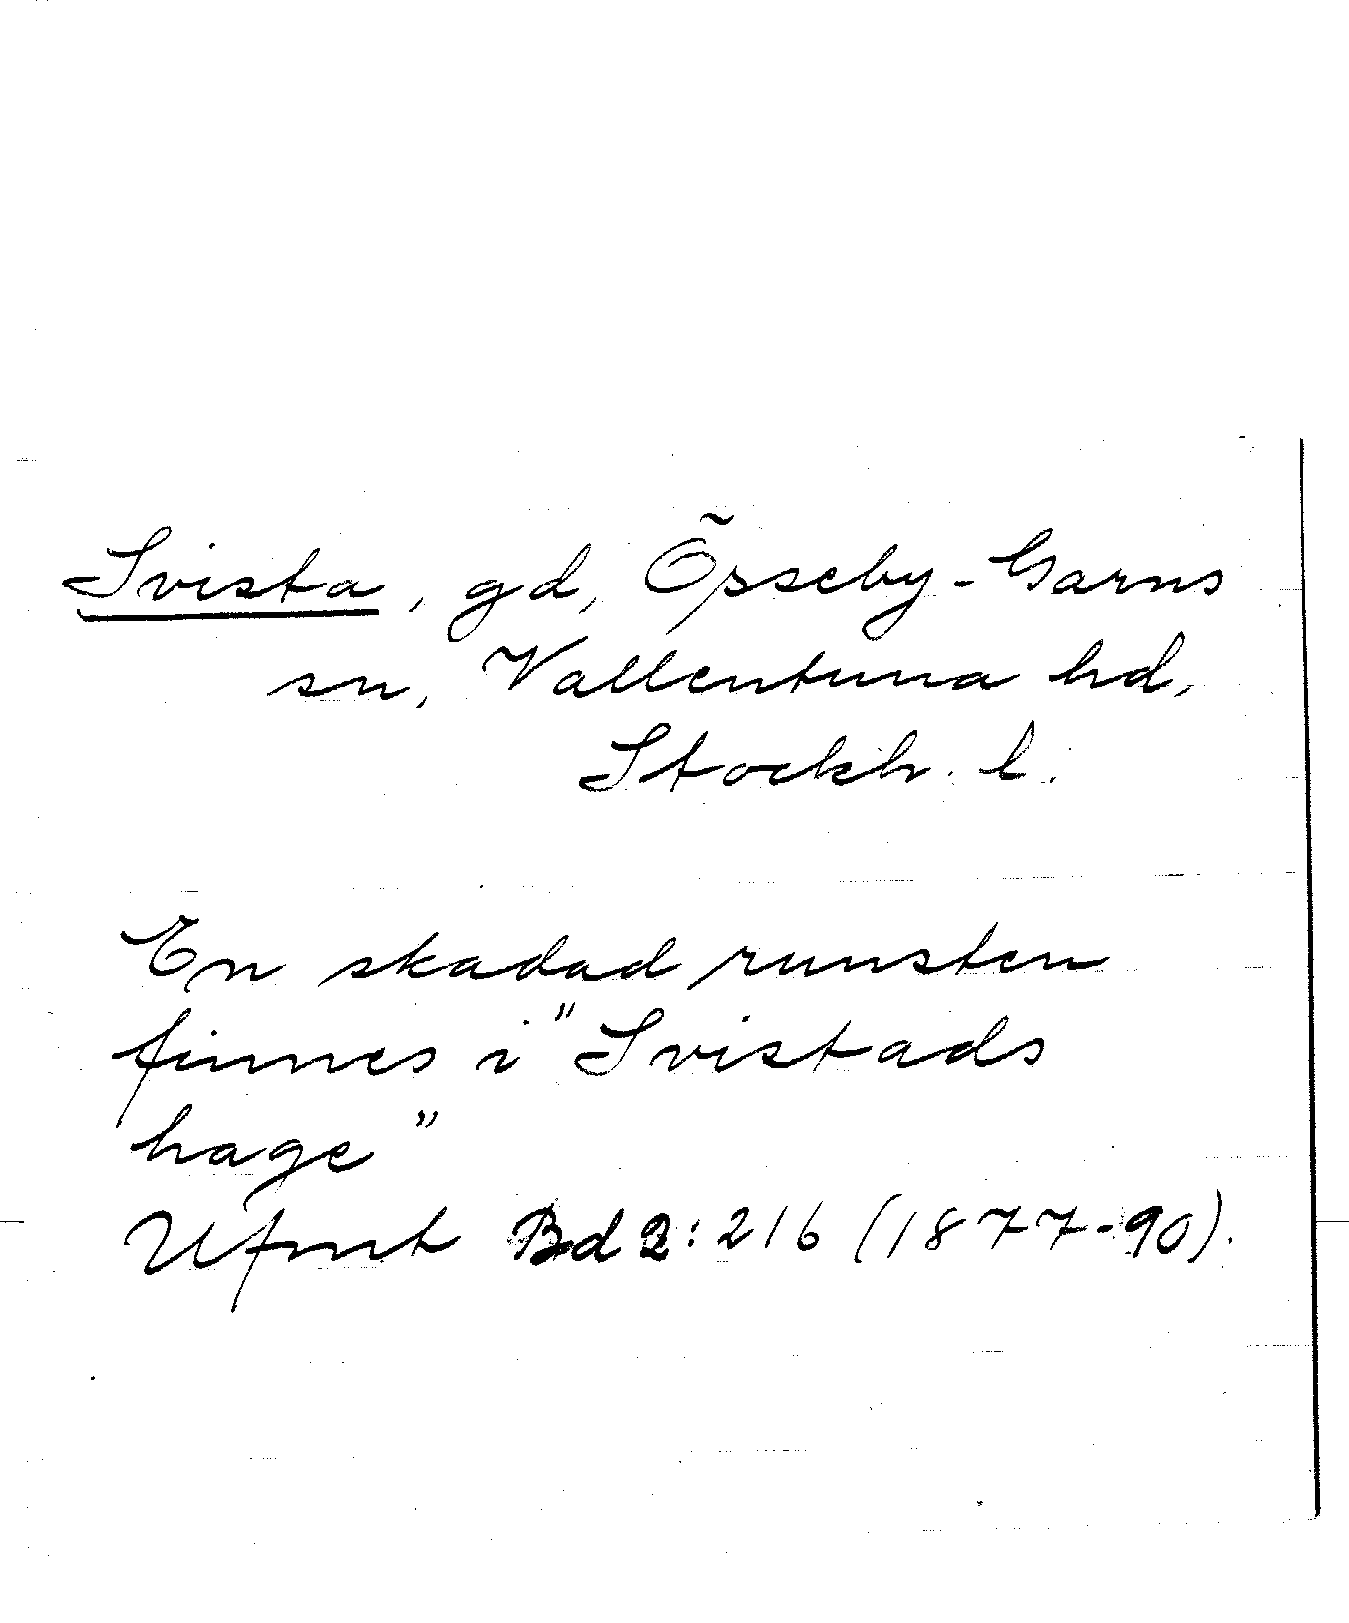 Svista, gd, Õpseby-Garns
sn, Vallentuna hd,
Stockh. l.
En skadad runsten
finnes i "Svistads
hage"
Ufmt Bd 2:216 (1877-90).